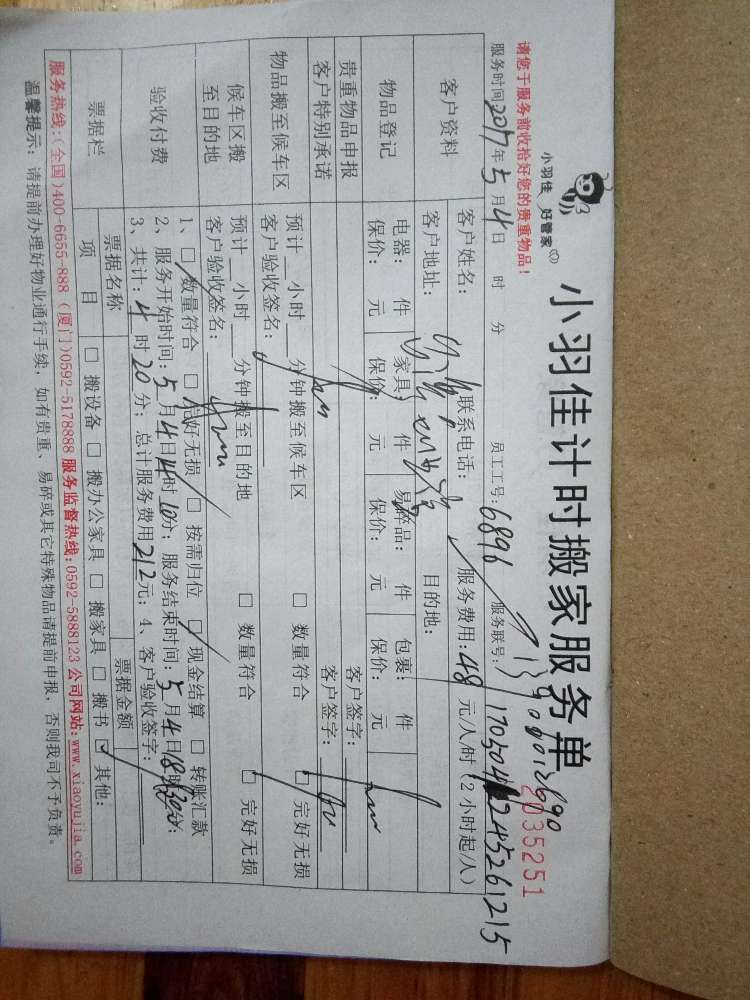 小羽佳 好管家
小羽佳计时搬家服务单
2035251
请您于服务前收拾好您的贵重物品!
服务时间2017年5月4日 时 分 员工工号:6896 服务联号:
客户资料
客户姓名: 联系电话: 服务费用:48元/人/时(2小时起/人)
客户地址: 目的地:
物品登记
电器: 件 家具: 件 易碎品: 件 包裹: 件
保价: 元 保价: 元 保价: 元 保价: 元
贵重物品申报 客户签字:
客户特别承诺 客户签字:
物品搬至候车区
预计__小时__分钟搬至候车区 □ 数量符合 □ 完好无损
客户验收签名:
候车区搬至目的地
预计__小时__分钟搬至目的地 □ 数量符合 □ 完好无损
客户验收签名:
验收付费
1、□ 数量符合 □ 完好无损 □ 按需归位 □ 现金结算 □ 转账汇款
2、服务开始时间:5月4日14时10分;服务结束时间:5月4日18时30分;
3、共计:4时20分;总计服务费用212元;4、客户验收签字:
票据栏
票据名称 票据金额
项目 □ 搬设备 □ 搬办公家具 □ 搬家具 □ 搬书 □ 其他:
服务热线:(全国)400-6655-888 (厦门)0592-5178888 服务监督热线:0592-5888123 公司网站:www.xiaoyujia.com
温馨提示:请提前办理好物业通行手续,如有贵重、易碎或其它特殊物品请提前申报,否则我司不予负责。